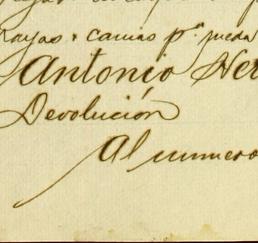 rayas i camas p.ª pueda
Antonio Her
Devolución
Al numero